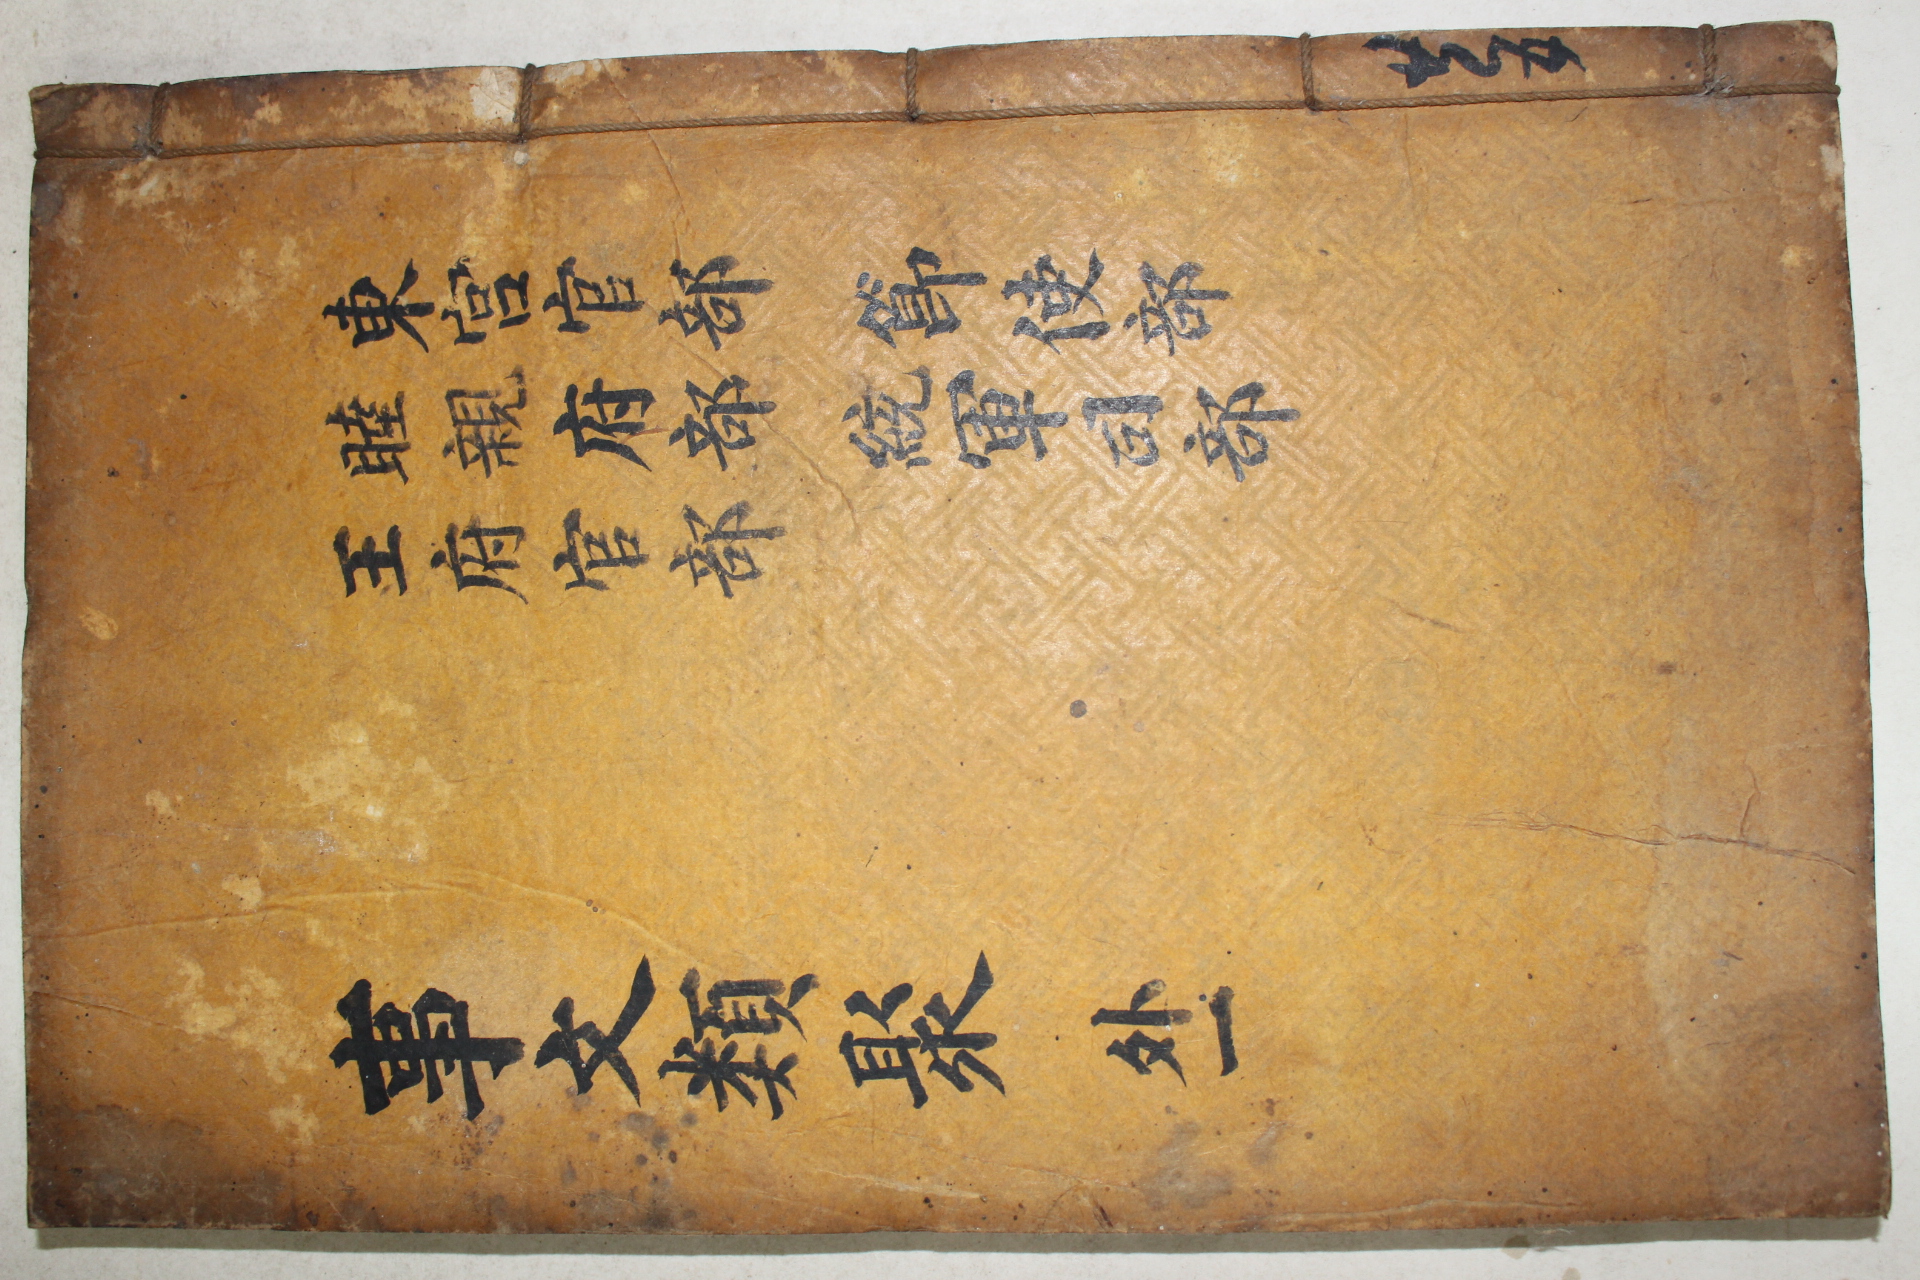 東宮官部 節使部
睦親府部 統軍司部
王府官部
事文類聚 外一
共五